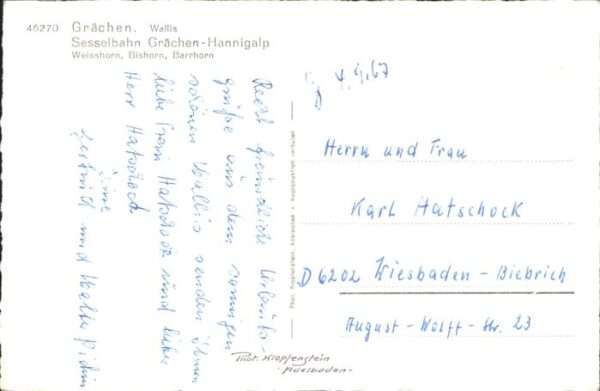 46270 Grächen. Wallis
Sesselbahn Grächen-Hannigalp
Weisshorn, Bishorn, Barrhorn
4.9.67
Recht freundliche Urlaubs-
grüße aus dem sonnigen
schönen Wallis senden Ihnen
liebe Frau Hatschock und lieber
Herr Hatschock
Ihre
Gertrud und Walter
Herrn und Frau
Karl Hatschock
D 6202 Wiesbaden - Biebrich
August-Wolff-Str. 23
Phot. Klopfenstein